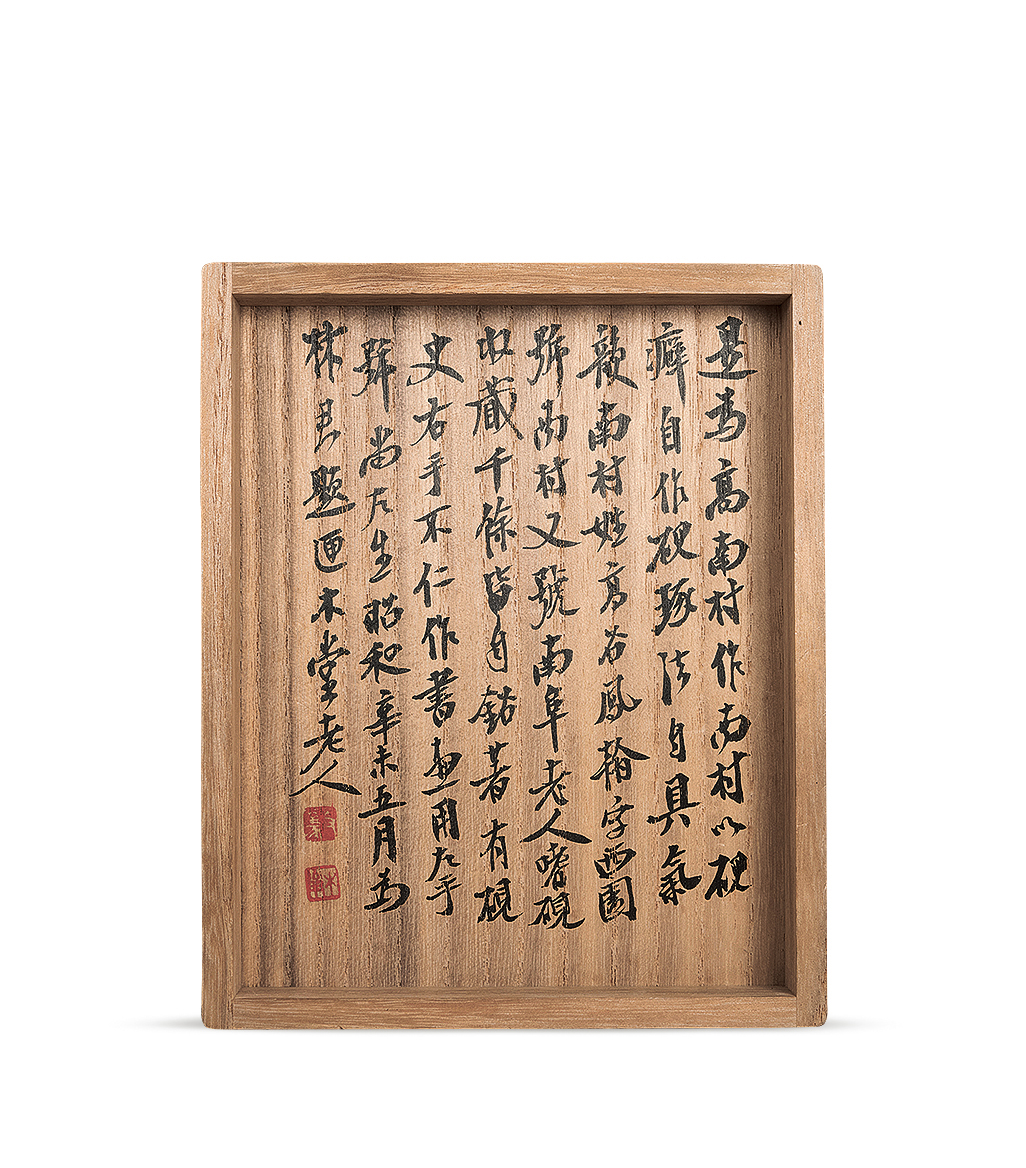 是為高南村作南村以硯
癖自作硯琢法自具氣
韻南村姓高名鳳翰字西園
號南村又號南阜老人嗜硯
收藏千餘皆自銘著有硯
史右手不仁作書畫用左手
號尚左生昭和辛未五月為
林君題匣木堂老人